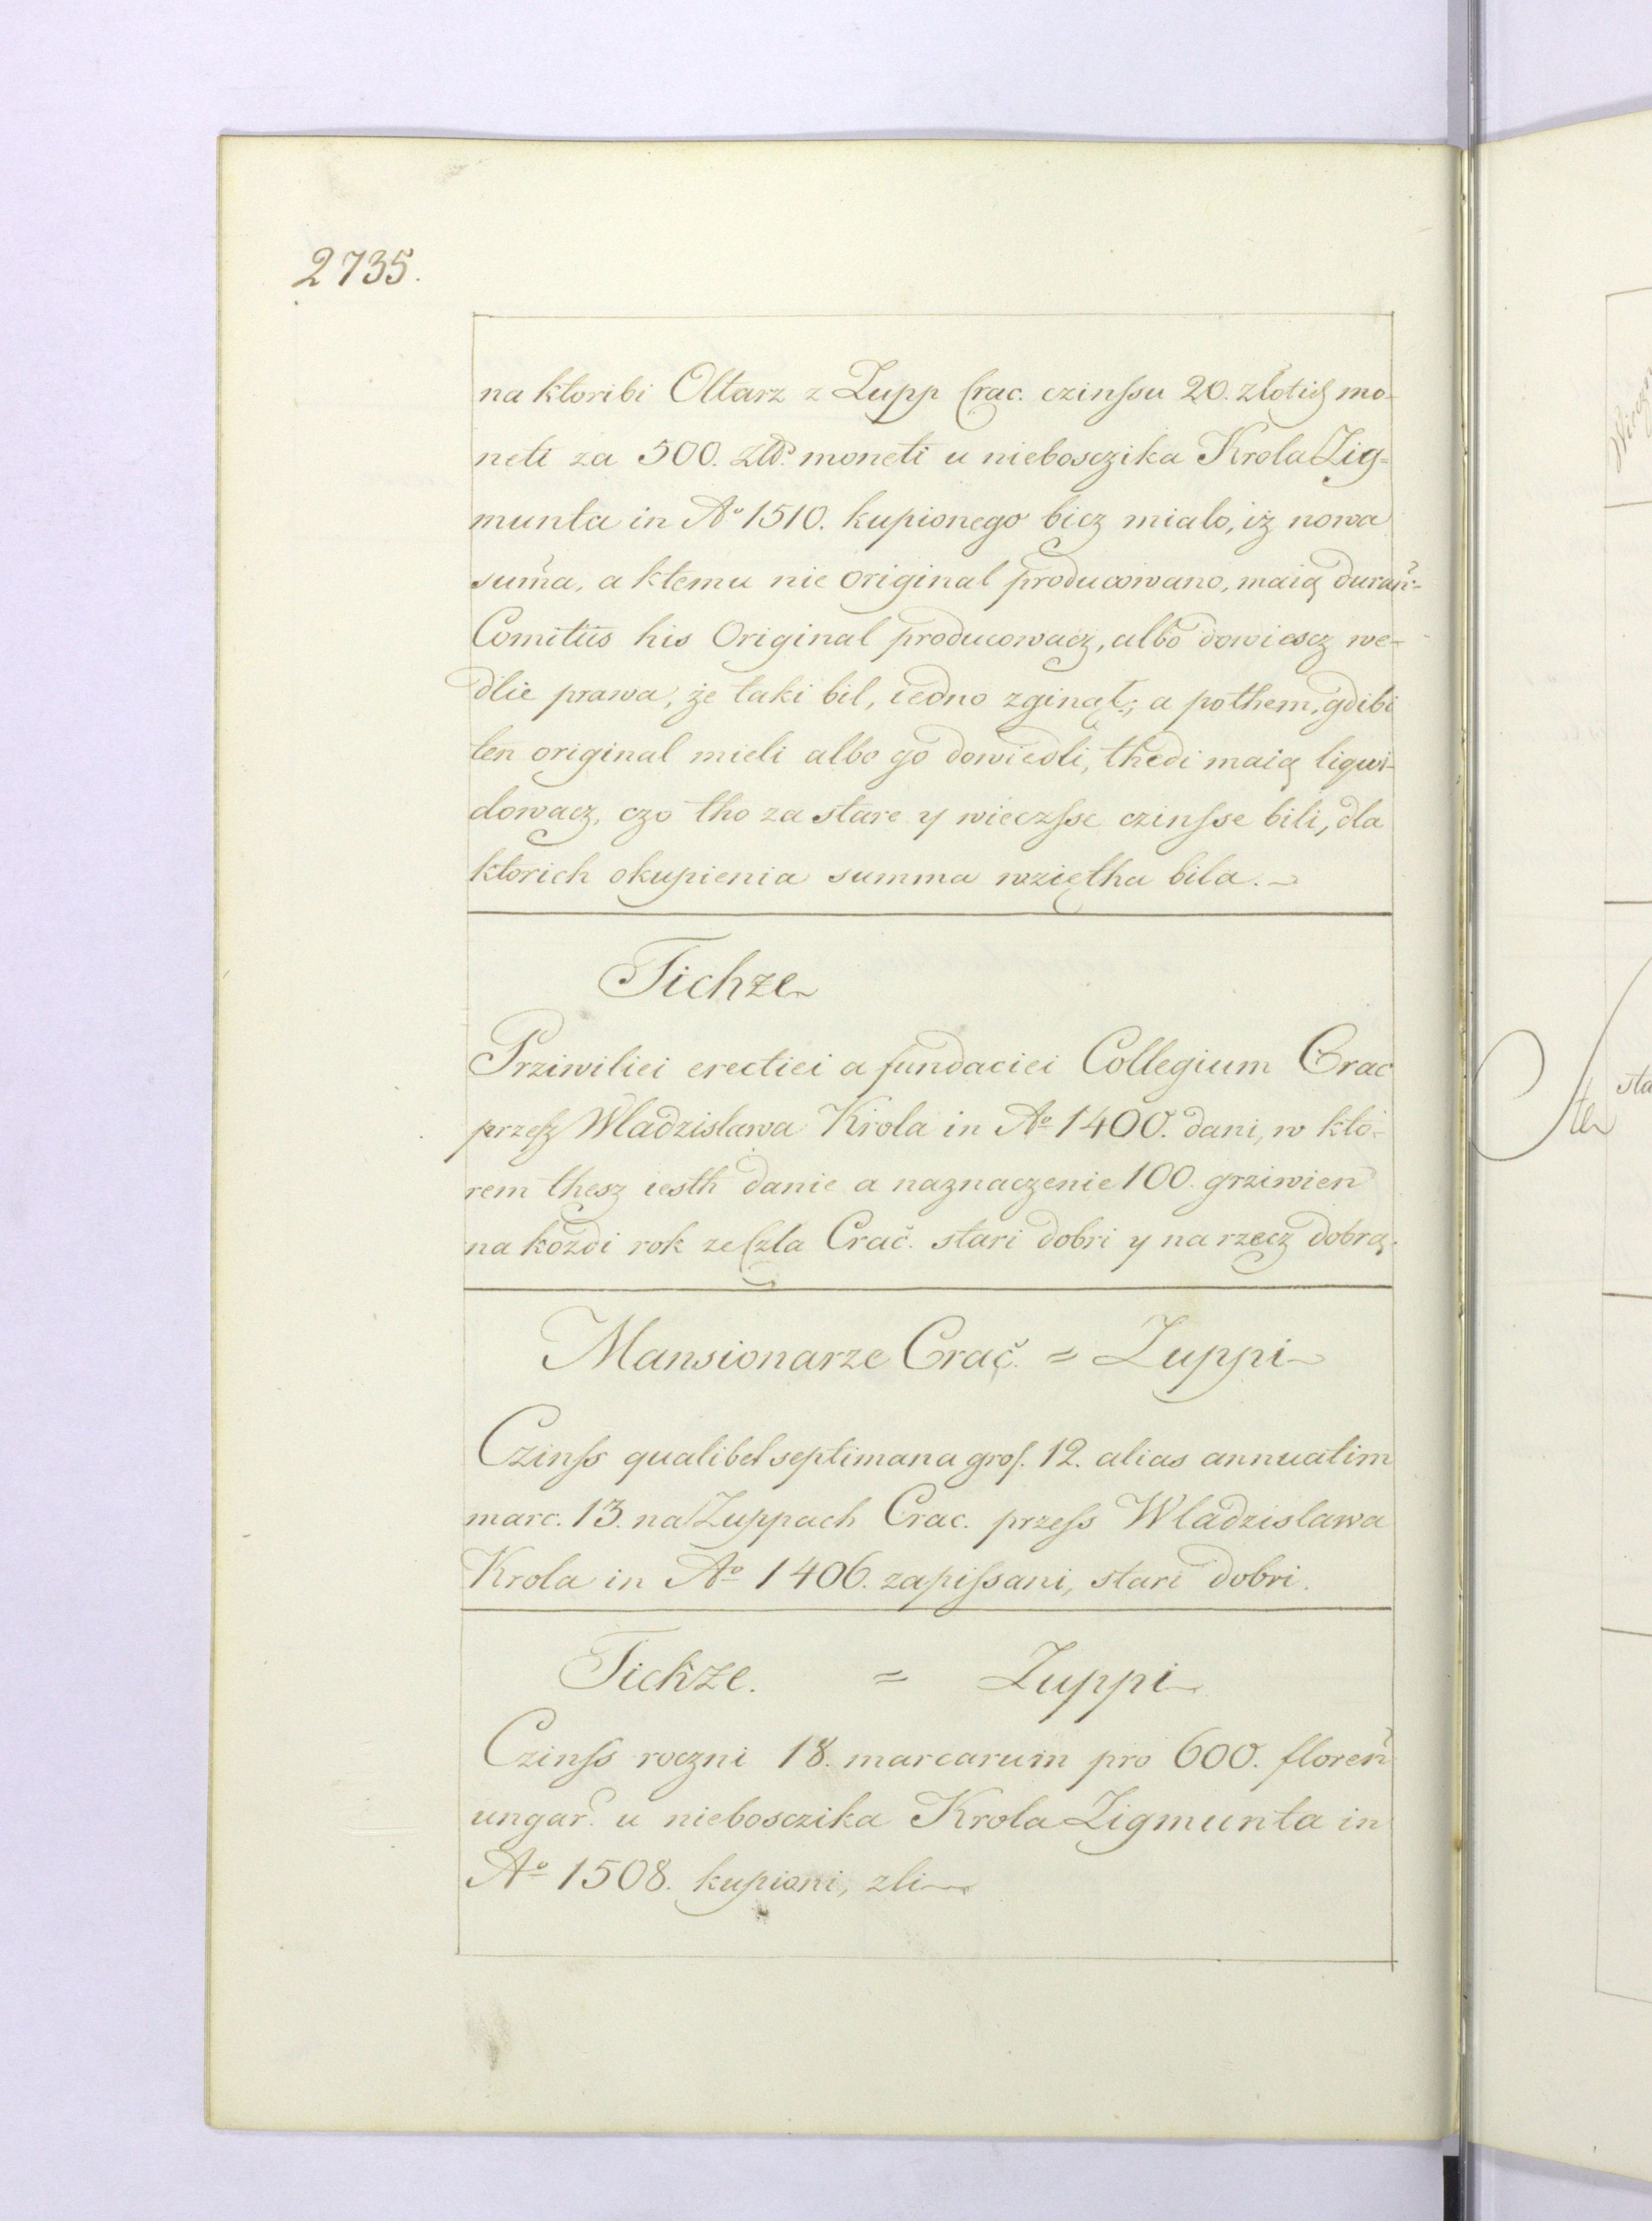 2735.
na ktoribi Oltarz z Zupp Crac. czinssu 20. złotich mo-
neti za 500. złď. moneti u nieboscżika Krola Zig=
munta in Aº 1510. kupionego bicz mialo, iż nowa
suma, a ktemu nie original producowano, maią durañ:
Comitiis his Original producowacz, albo dowiescz we-
dlie prawa, że taki bil, iedno zginął; a pothem, gdibi
ten original mieli albo go dowiedli, thedi maią liqwi-
dowacz, czo tho za stare y wieczsse czinsse bili, dla
ktorich okupienia summa wziętha bila.
Tichze
Prziwiliei erectiei a fundaciei Collegium Crac
przesz Wladzislawa Krola in Aº 1400. dani, w kto-
rem thesz iesth danie a naznaczenie 100. grziwien
na kożdi rok ze czla Crac. stari dobri y na rzecz dobrą.
Mansionarze Crac. = Zuppi
Czinss qualibet septimana gros. 12. alias annuatim
marc. 13. na Zuppach Crac. przess Wladzislawa
Krola in Aº 1406. zapissani, stari dobri.
Tichze. = Zuppi
Czinss roczni 18. marcarum pro 600. floreñ
ungar. u niebosczika Krola Zigmunta in
Aº 1508. kupioni, zli